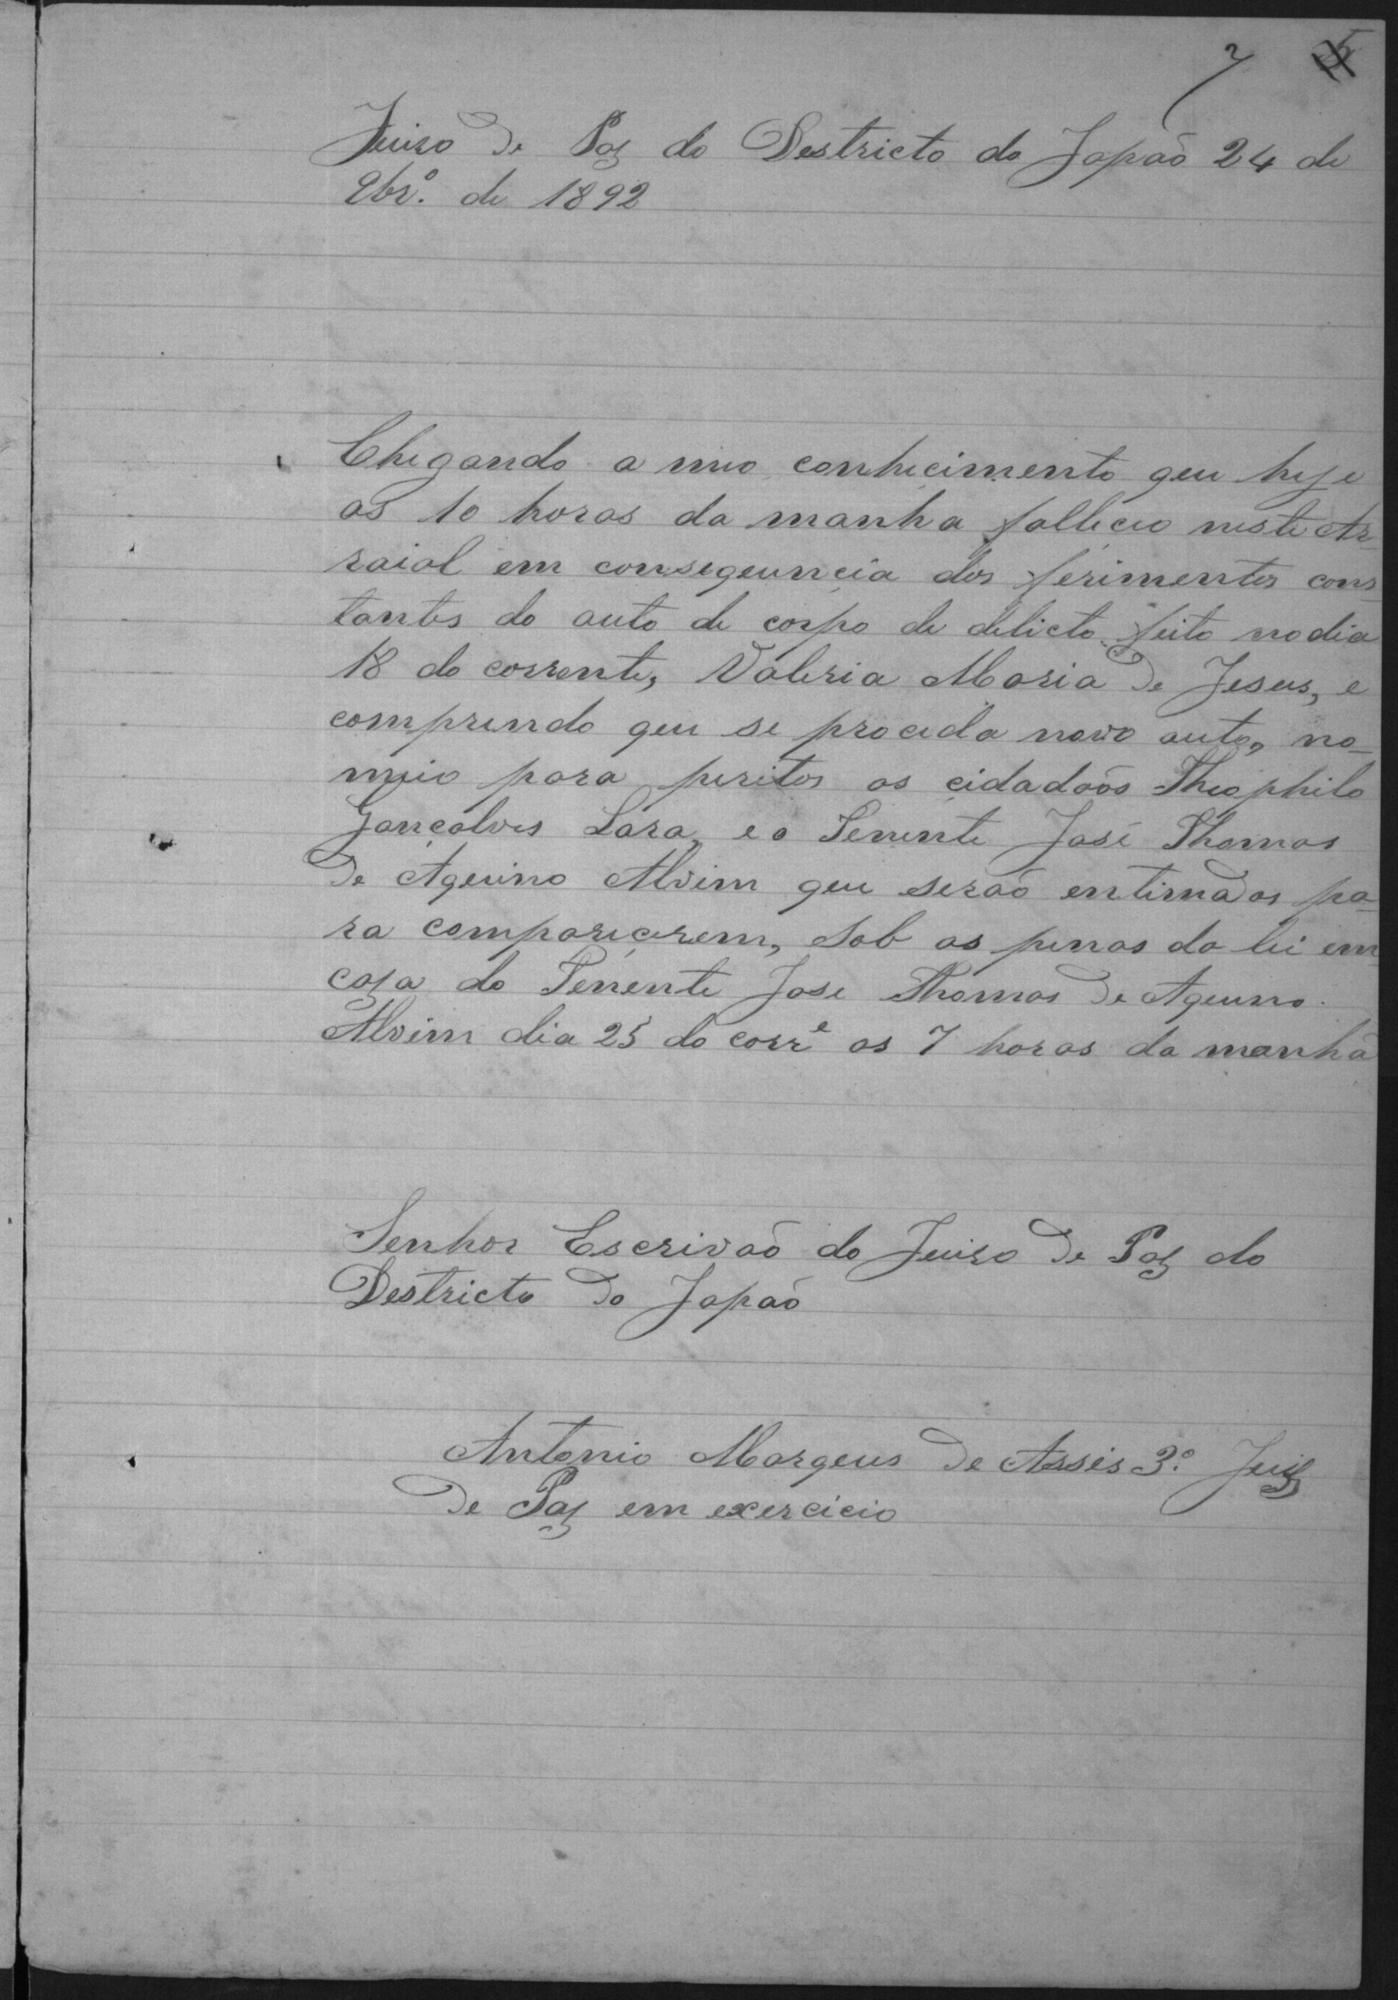 7 5
Juiso de Paz do Destricto do Japaõ 24 de
9br.º de 1892
Chegando a meo conhecimento qeu hoje
as 10 horas da manha falleceo neste Ar-
raial em conseqeuncia dos ferimentos cons-
tantes do auto de corpo de delicto feito no dia
18 do corrente, Valeria Maria de Jesus, e
comprindo qeu se proceda novo auto, no-
meio para peritos os cidadaõs Theophilo
Gonçalves Lara, e o Tenente José Thomas
de Aqeuino Alvim qeu seraõ entimados pa-
ra comparecerem, sob as penas da lei em
casa do Tenente Jose Thomas de Aqeuino
Alvim dia 25 do corrᵉ as 7 horas da manhã
Senhor Escrivaõ do Juiso de Paz do
Destricto do Japaõ
Antonio Marqeus de Assis 3.º Juiz
de Paz em exercicio